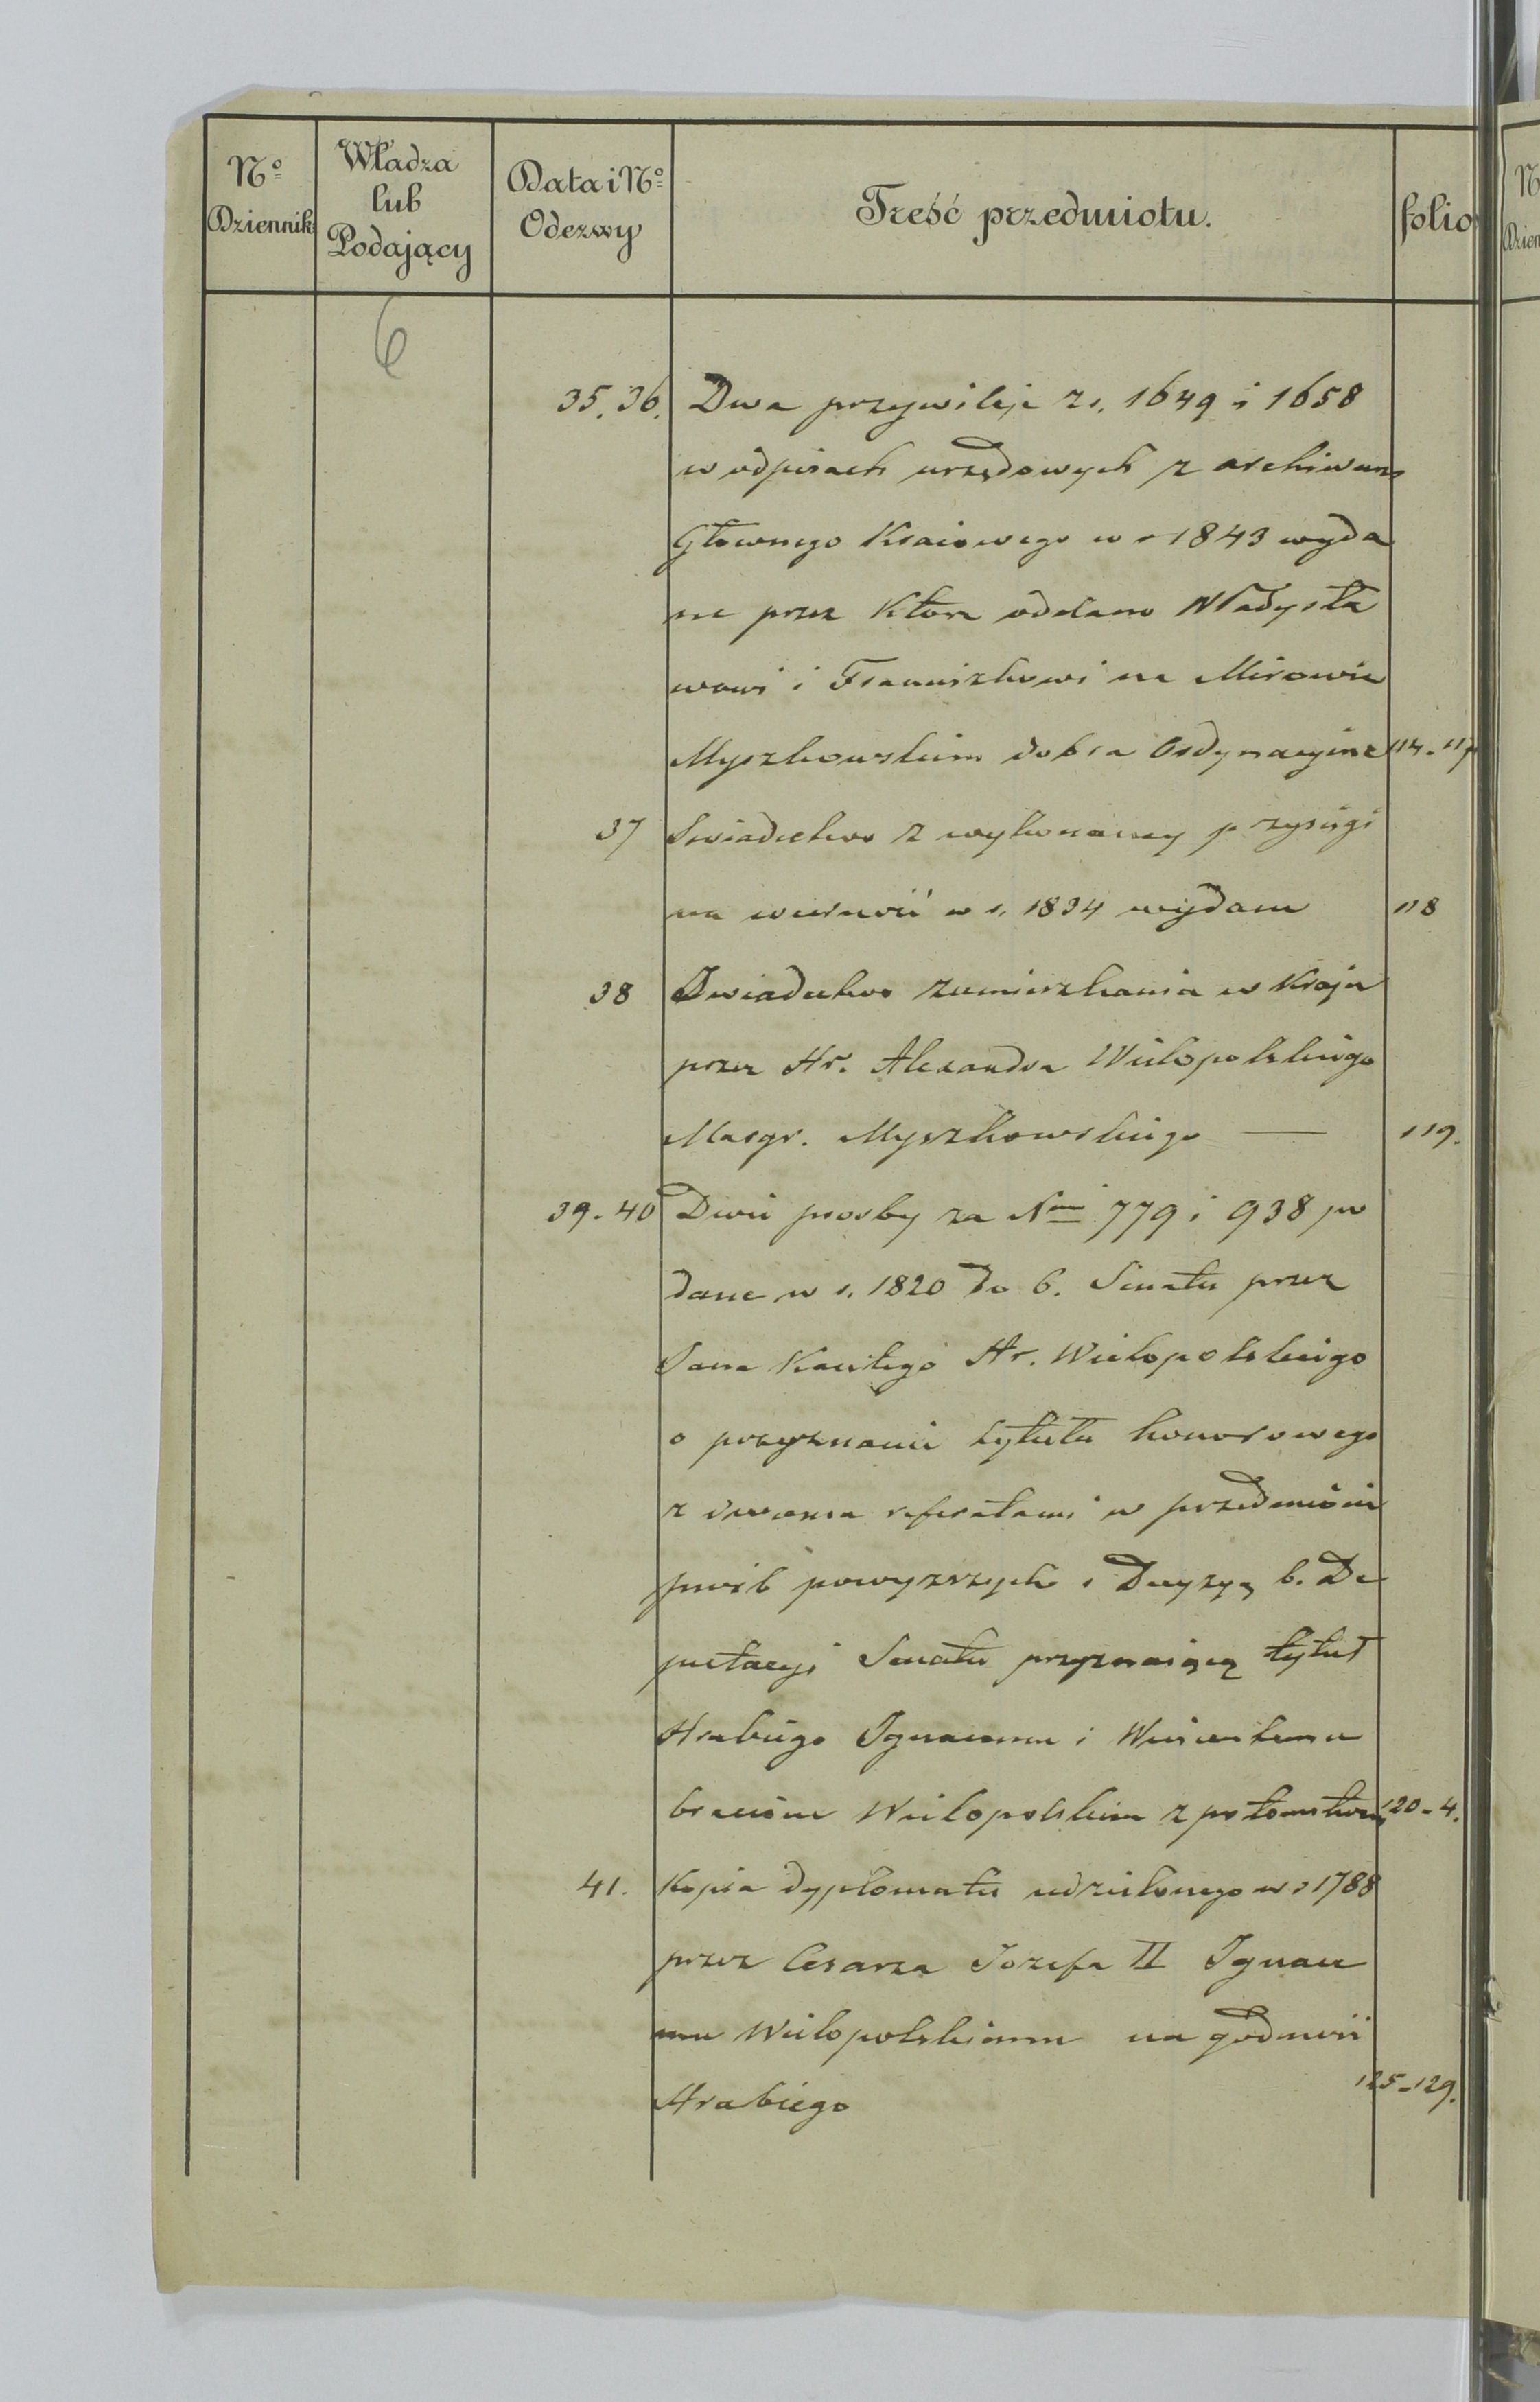 Nº Dziennik
Władza lub Podający
Data i Nº Odezwy
Treść przedmiotu.
folio
6
35. 36. Dwa przywileje z r. 1649 i 1658
w odpisach urzędowych z archiwum
Głownego Kraiowego w r 1843 wyda
ne przez które oddano Władysła
wowi i Franciszkowi na Mirowie
Myszkowskim dobra Ordynacyine 114-117
37 Swiadectwo z wykonaney przysięgi
na wierność w r. 1834 wydane 118
38 Swiadectwo zamieszkania w Kraju
przez Hr. Alexandra Wielopolskiego
Margr. Myszkowskiego — 119.
39-40 Dwie prosby za Nmi 779 i 938 po
dane w r. 1820 do b. Senatu przez
Jana Kantego Hr. Wielopolskiego
o przyznanie tytułu honorowego
z dwoma referatami w przedmiocie
prosb powyzszych i Decyzyą b. De
putacyi Senatu przyznaiącą tytuł
Hrabiego Ignacemu i Wincentemu
braciom Wielopolskim z potomstwem 120-4.
41. Kopia dyplomatu udzielonego w r 1788
przez Cesarza Jozefa II Ignace
mu Wielopolskiemu na godność
Hrabiego 125-129.
Nº
Dzien